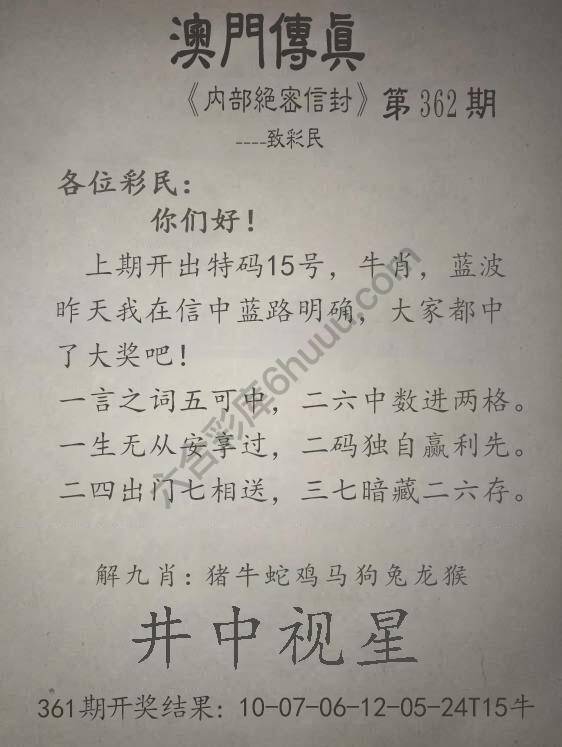 澳門傳真
《内部絕密信封》第362期
----致彩民
各位彩民：
你们好！
上期开出特码15号，牛肖，蓝波
昨天我在信中蓝路明确，大家都中
了大奖吧！
一言之词五可中，二六中数进两格。
一生无从安享过，二码独自赢利先。
二四出门七相送，三七暗藏二六存。
六合彩库6huuu.com
解九肖：猪牛蛇鸡马狗兔龙猴
井中视星
361期开奖结果：10-07-06-12-05-24T15牛